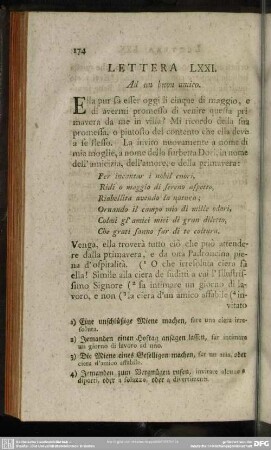 174
LETTERA LXXI.
Ad un buon amico.
Ella pur sa esser oggi li cinque di maggio, e
di avermi promesso di venire questa pri-
mavera da me in villa? Mi ricordo della sua
promessa, o piutosto del contento che ella deve
a se stesso. La invito nuovamente a nome di
mia moglie, a nome della furbetta Dori, in nome
dell'amicizia, dell'amore, e della primavera:
Per incantar i nobil cuori,
Ridi o maggio di sereno aspetto,
Rinbellita avendo la natura;
Ornando il campo mio di mille odori,
Colmi gl'amici miei di gran diletto,
Che grati sanno far di te coltura.
Venga, ella troverà tutto ciò che può attende-
re dalla primavera, e da una Padroncina pie-
na d'ospitalità. (¹ O che irresoluta ciera fa
ella! Simile alla ciera de sudditi a cui l'Illustrissi-
mo Signore (² fa intimare un giorno di la-
voro, e non (³ la ciera d'un amico affabile (⁴ in-
vitato
1) Eine unschlüßige Miene machen, fare una ciera irre-
soluta.
2) Jemanden einen Hoftag ansagen lassen, far intimare
un giorno di lavoro ad uno.
3) Die Miene eines Geselligen machen, far un aria, oder
ciera d'amico affabile.
4) Jemanden zum Vergnügen rufen, invitare alcuno a
diporti, oder a solazzo, oder a divertimenti.